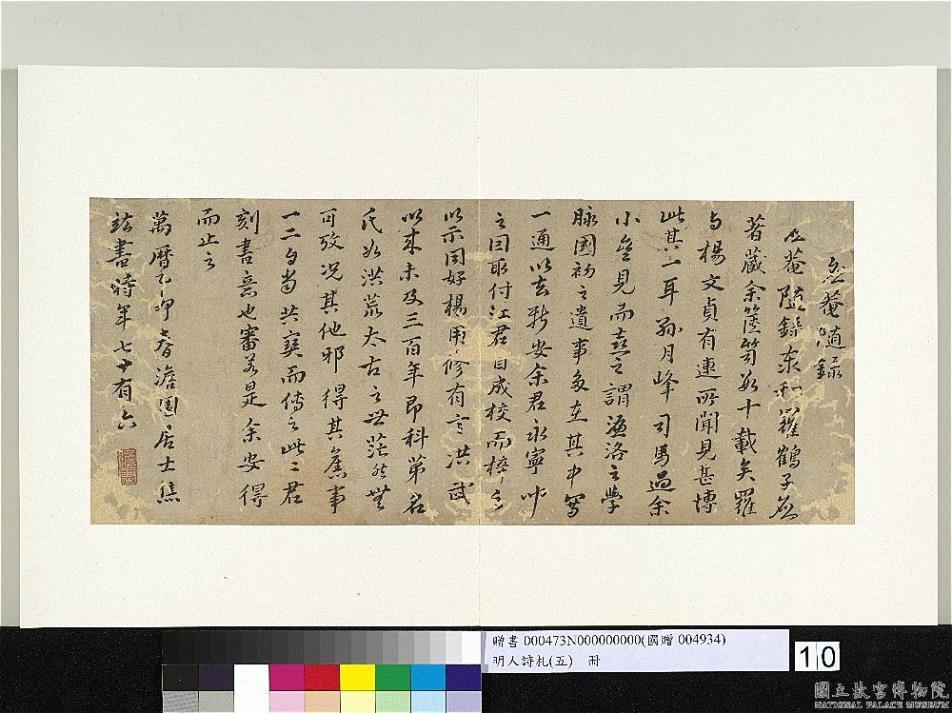 丘菴隨錄
丘菴隨錄泰和羅鶴子應
著藏余篋笥數十載矣羅
与楊文貞有連所聞見甚博
此其一耳孫月峰司馬過余
小𡸁見而喜之謂濂洛之學
脉國初之遺事多在其中寫
一通以去新安余君永寧
之因取付江君自成校而梓之
以示同好楊用修有言洪武
以來未及三百年即科第名
氏如洪荒太古之世茫然無
可攷況其他邪得其舊事
一二句當共寶而傳之此二君
刻書意也審若是余安得
而止之
萬曆乙卯春澹園居士焦
竑書時年七十有六
贈書 000473N000000000(國贈 004934)
明人詩札(五) 冊
10
國立故宮博物院
NATIONAL PALACE MUSEUM